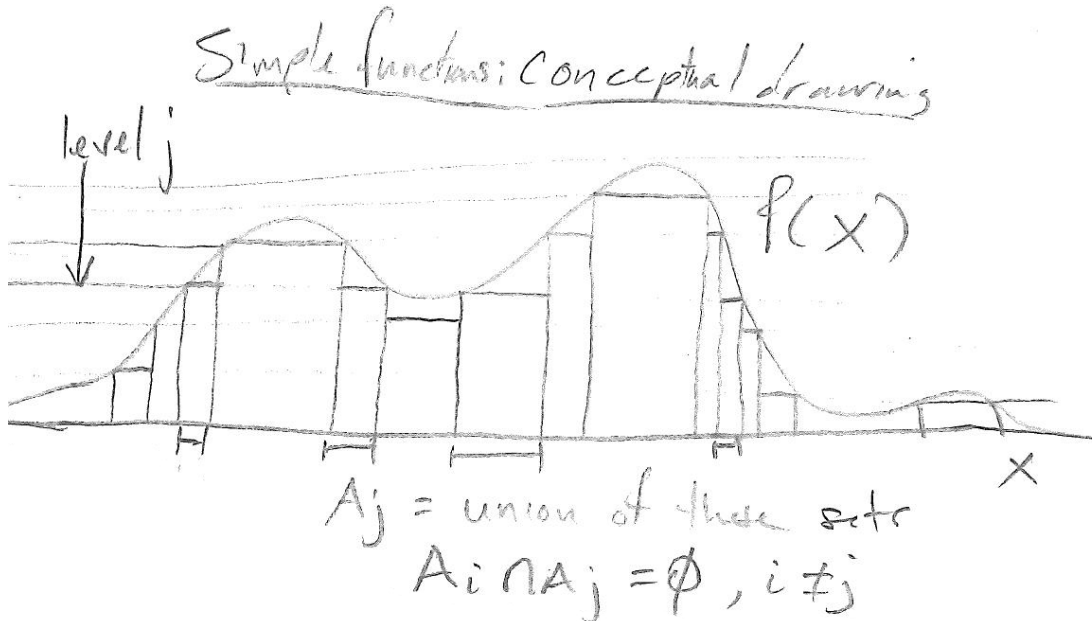 Simple functions: Conceptual drawing
level j
f(x)
X
Aj = union of these sets
Ai ∩ Aj = ϕ, i ≠ j